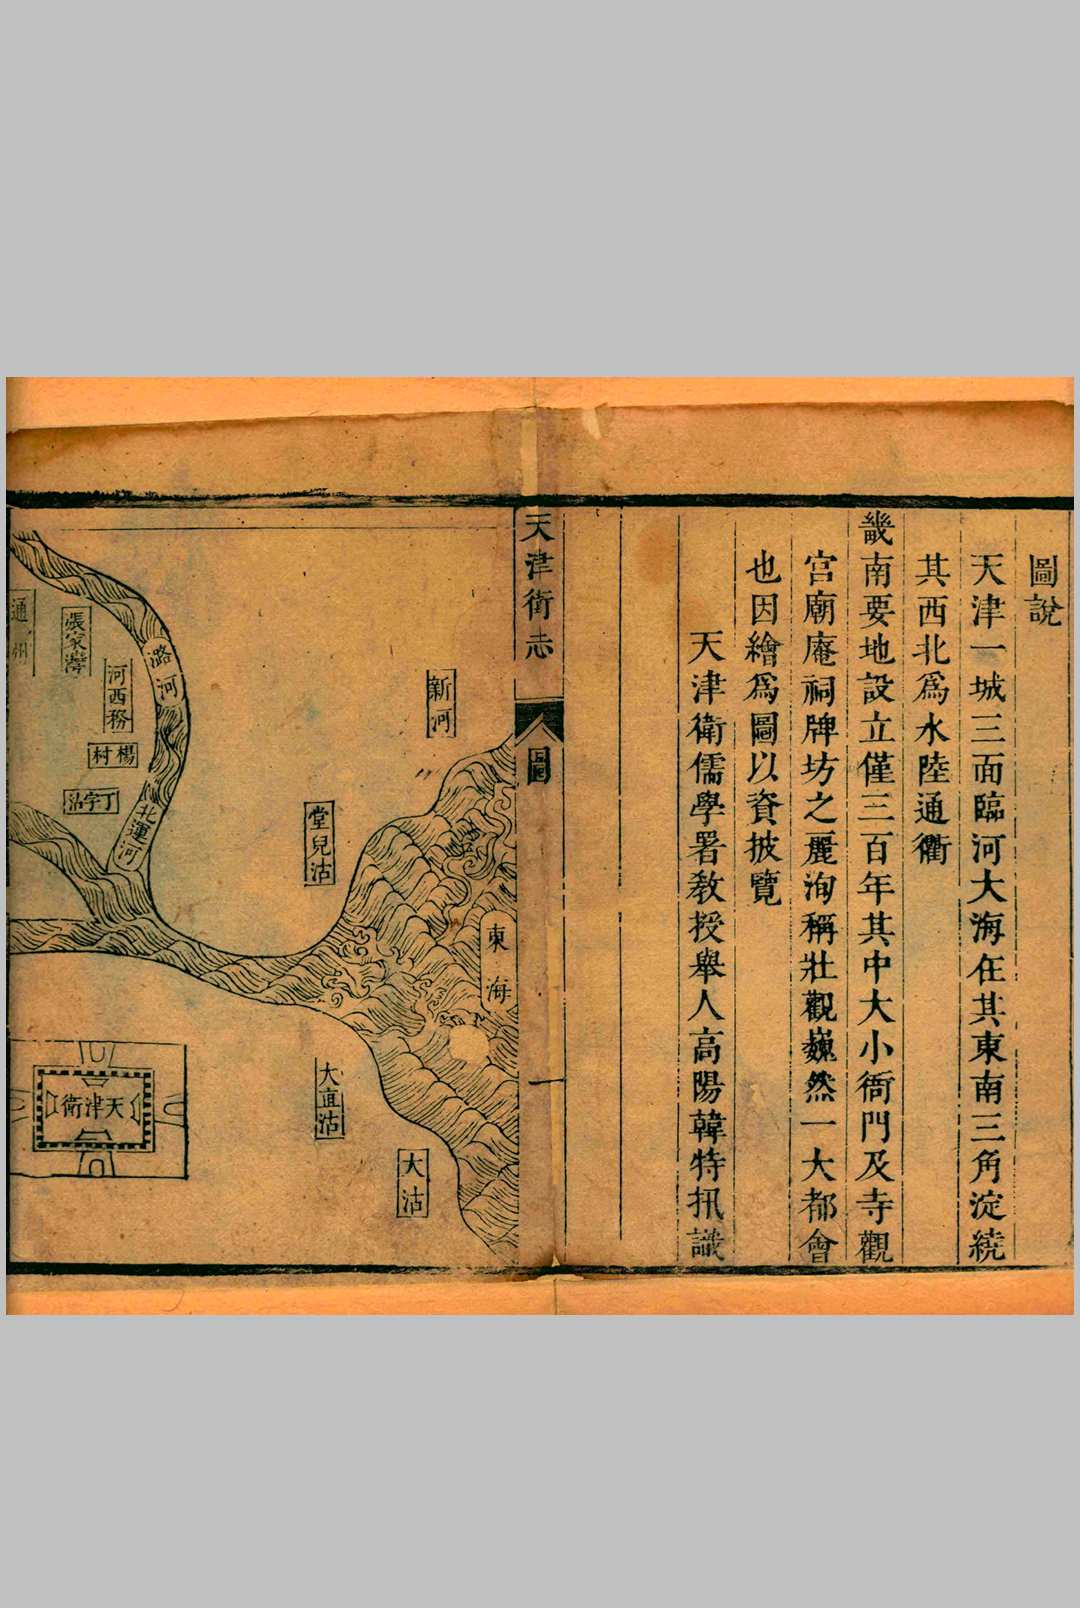 圖說
天津一城三面臨河大海在其東南三角淀繞
其西北爲水陸通衢
畿南要地設立僅三百年其中大小衙門及寺觀
宮廟庵祠牌坊之麗洵稱壯觀巍然一大都會
也因繪爲圖以資披覽
天津衛儒學署教授舉人高陽韓特抯識
天津衛志
圖
一
新河
東海
堂兒沽
大直沽
大沽
潞河
北運河
河西務
楊村
丁字沽
張家灣
通州
天津衛